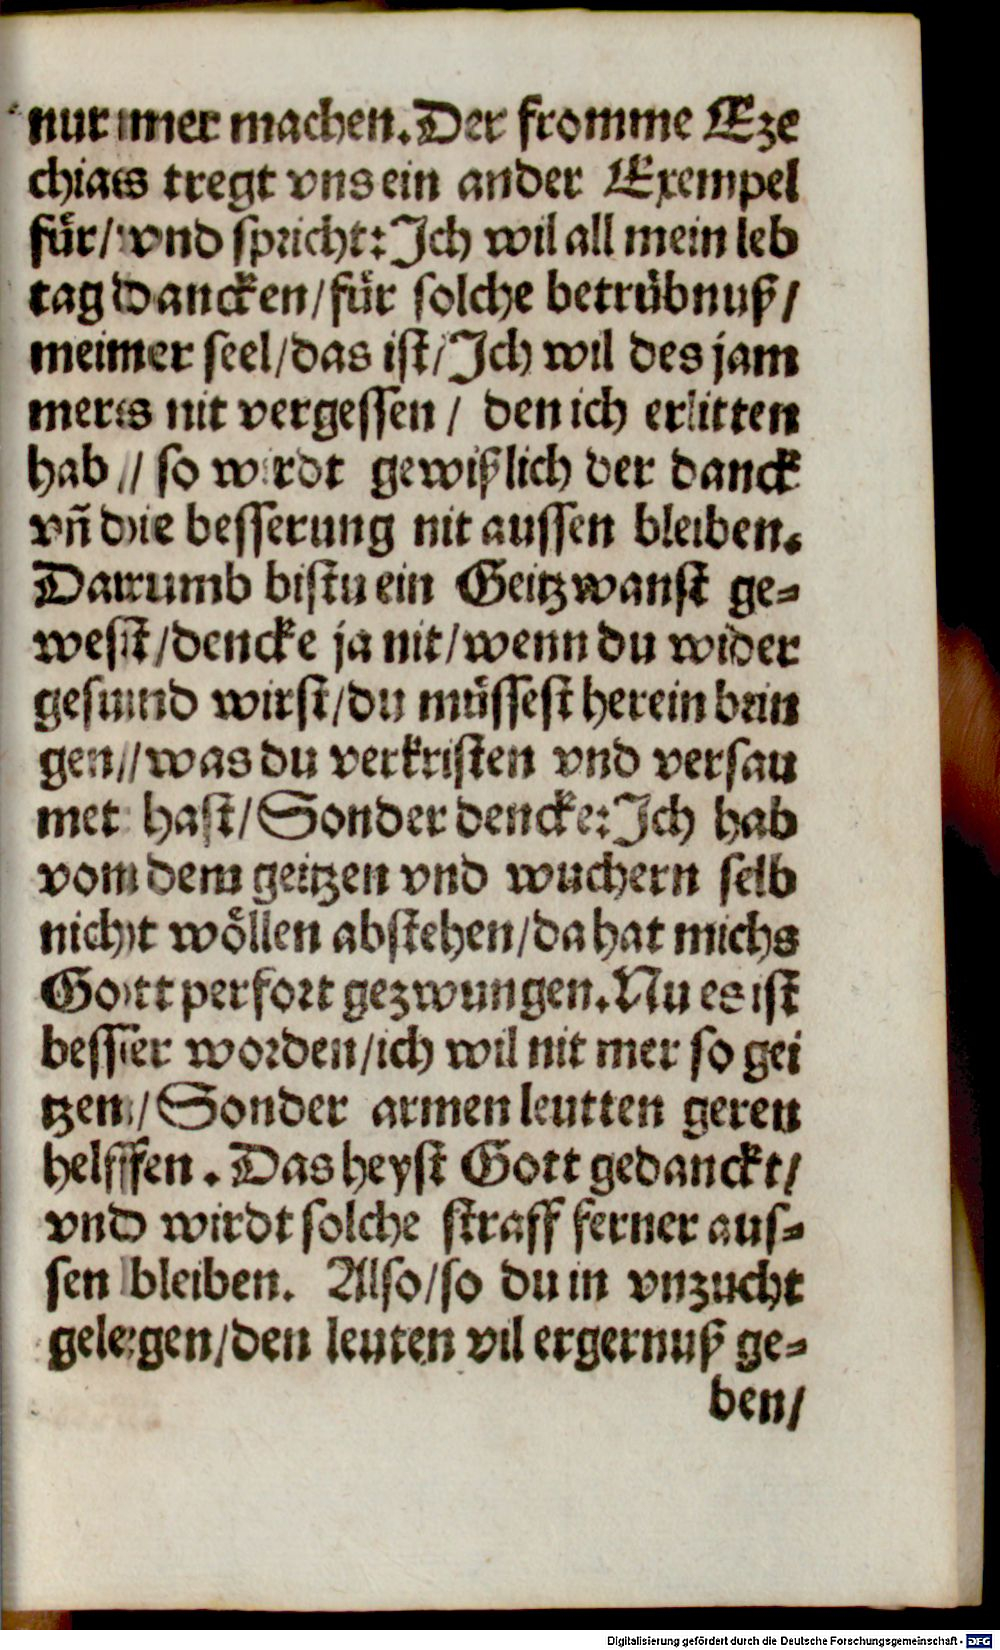 nur mer machen. Der fromme Eze
chias tregt vns ein ander Exempel
für/ vnd spricht: Ich wil all mein leb
tag dancken/ für solche betrübnuß/
meiner seel/ das ist/ Ich wil des jam
mers nit vergessen/ den ich erlitten
hab/ so wirdt gewißlich der danck
vñ die besserung nit aussen bleiben.
Darumb bistu ein Geitzwanst ge⸗
west/ dencke ja nit/ wenn du wider
gesund wirst/ du müssest herein brin
gen/ was du verkristen vnd versau
met hast/ Sonder dencke: Ich hab
vom dem geitzen vnd wuchern selb
nicht wöllen abstehen/ da hat michs
Gott perfort gezwungen. Nu es ist
besser worden/ ich wil nit mer so gei
tzen/ Sonder armen leutten geren
helffen. Das heyst Gott gedanckt/
vnd wirdt solche straff ferner aus⸗
sen bleiben. Also/ so du in vnzucht
gelegen/ den leuten vil ergernuß ge⸗
ben/
Digitalisierung gefördert durch die Deutsche Forschungsgemeinschaft - DFG